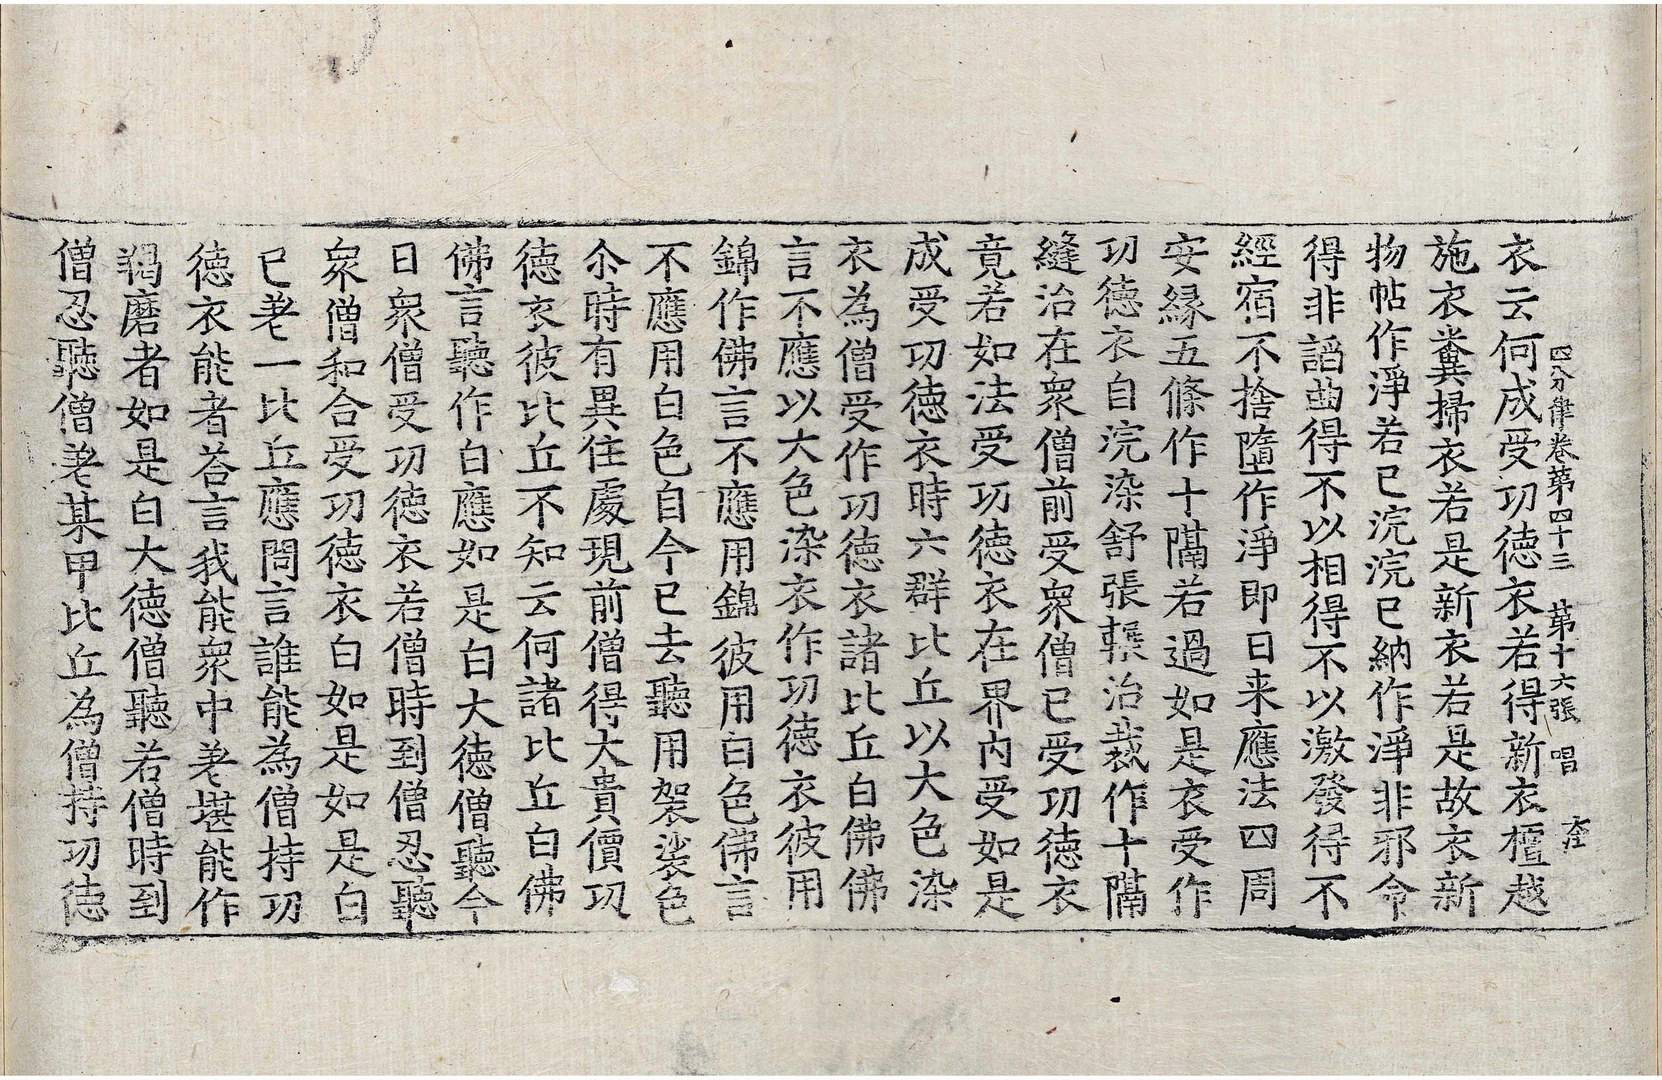 四分律卷第四十三 第十六張 唱
衣云何成受功德衣若得新衣檀越
施衣糞掃衣若是新衣若是故衣新
物帖作淨若已浣浣已納作淨非邪命
得非諂曲得不以相得不以激發得不
經宿不捨墮作淨即日来應法四周
安縁五條作十隔若過如是衣受作
功德衣自浣染舒張輾治裁作十隔
縫治在衆僧前受衆僧已受功德衣
竟若如法受功德衣在界内受如是
成受功德衣時六群比丘以大色染
衣為僧受作功德衣諸比丘白佛佛
言不應以大色染衣作功德衣彼用
錦作佛言不應用錦彼用白色佛言
不應用白色自今已去聽用袈裟色
尒時有異住處現前僧得大貴價功
德衣彼比丘不知云何諸比丘白佛
佛言聽作白應如是白大德僧聽今
日衆僧受功德衣若僧時到僧忍聽
衆僧和合受功德衣白如是如是白
已差一比丘應問言誰能為僧持功
德衣能者荅言我能衆中差堪能作
羯磨者如是白大德僧聽若僧時到
僧忍聽僧差某甲比丘為僧持功德